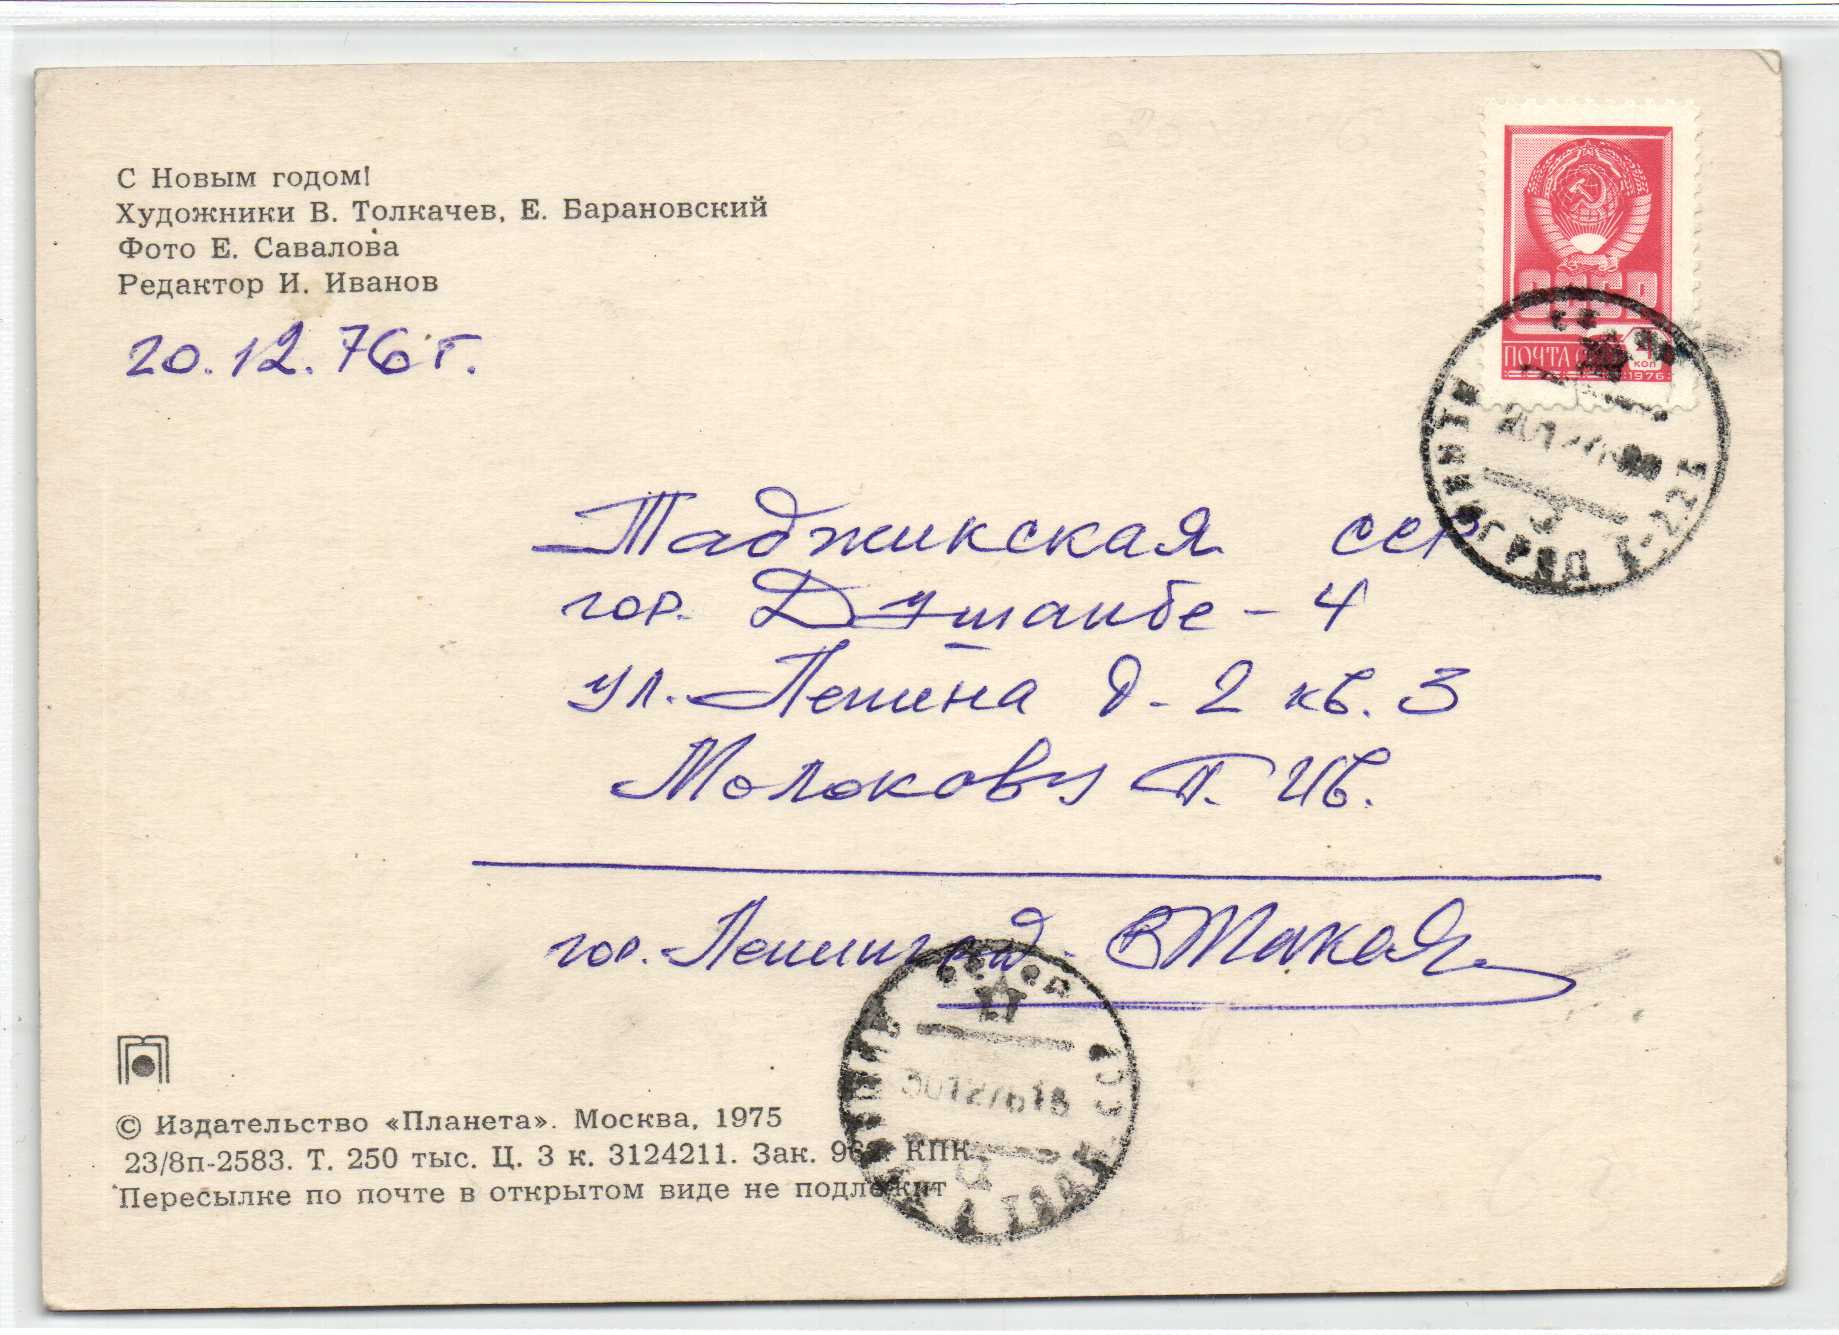 С Новым годом!
Художники В. Толкачев, Е. Барановский
Фото Е. Савалова
Редактор И. Иванов
20.12.76 г.
СССР
ПОЧТА
4
коп
1976
Таджикская ССР
гор. Душанбе - 4
ул. Ленина д - 2 кв. 3
Молокову П. Ив.
гор. Ленинград.
© Издательство «Планета». Москва, 1975
23/8п-2583. Т. 250 тыс. Ц. 3 к. 3124211. Зак. КПК.
Пересылке по почте в открытом виде не подлежит